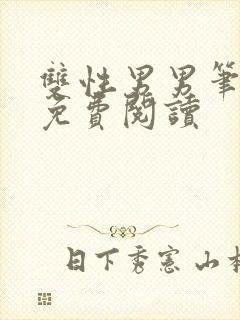 雙性男男筆
免費閱讀
日下秀憲 山本